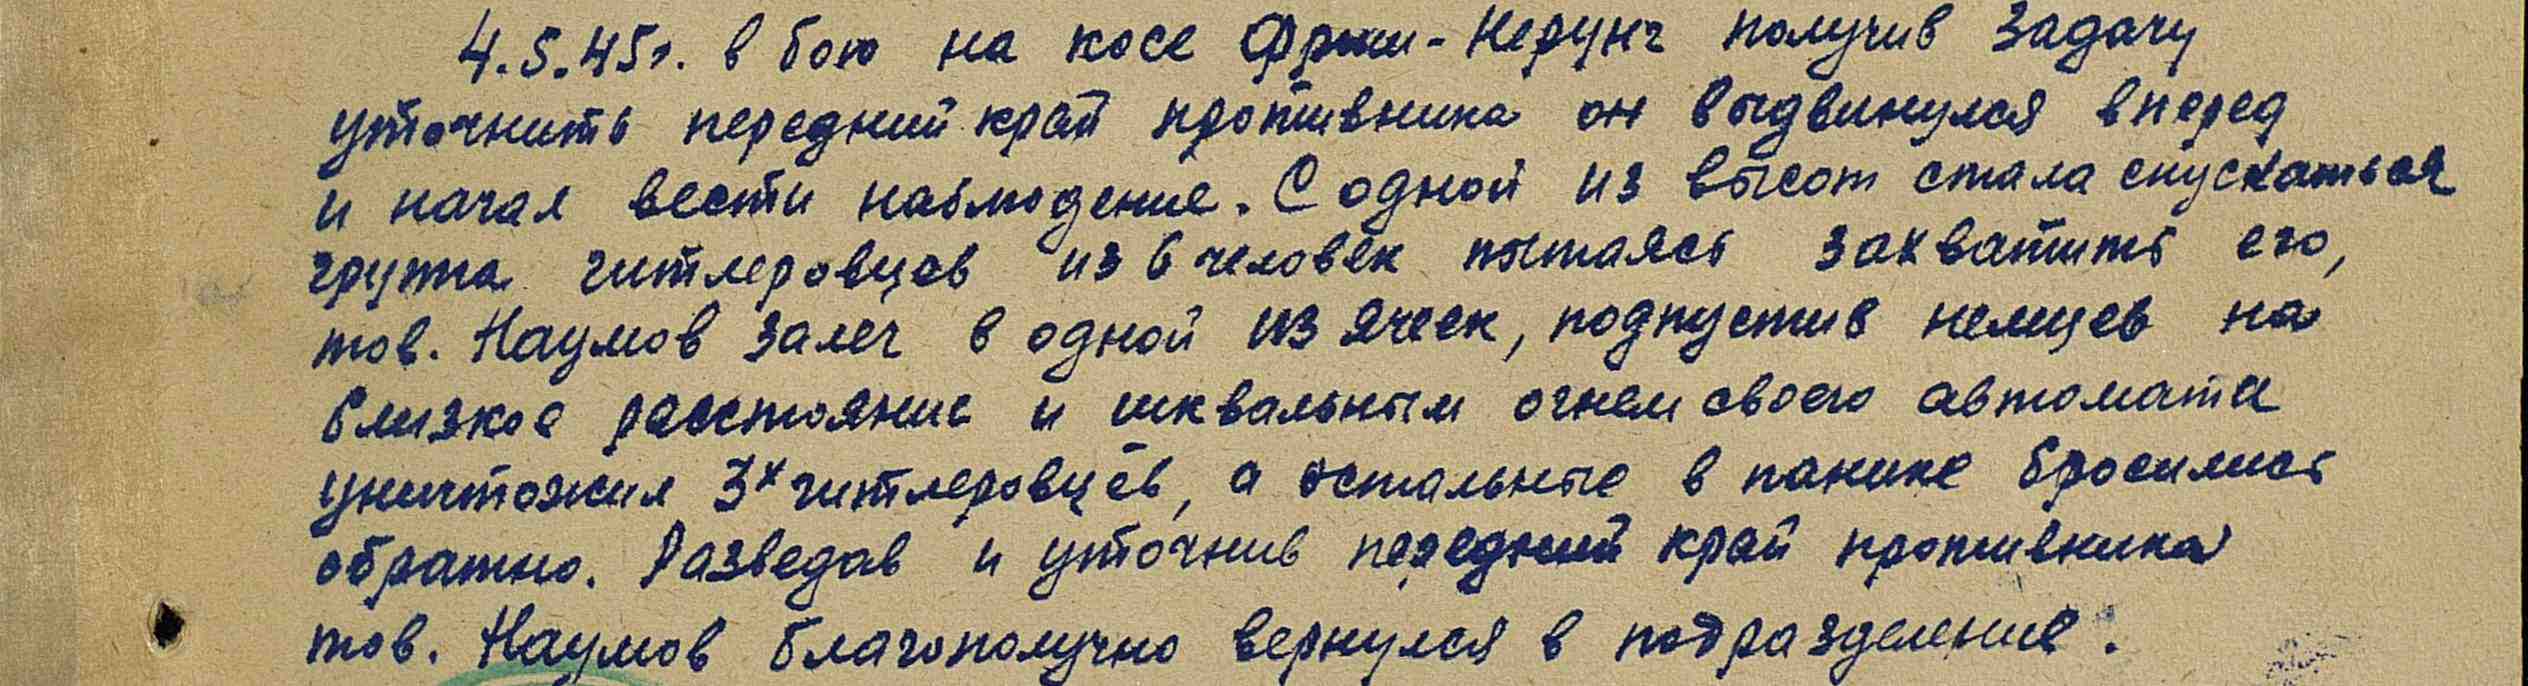 4.5.45г. в бою на косе Фриш-Нерунг получив задачу
уточнить передний край противника он выдвинулся вперед
и начал вести наблюдение. С одной из высот стала спускаться
группа гитлеровцев из 6 человек пытаясь захватить его,
тов. Наумов залег в одной из ячеек, подпустив немцев на
близкое расстояние и шквальным огнем своего автомата
уничтожил 3х гитлеровцев, а остальные в панике бросились
обратно. Разведав и уточнив передний край противника
тов. Наумов благополучно вернулся в подразделение.